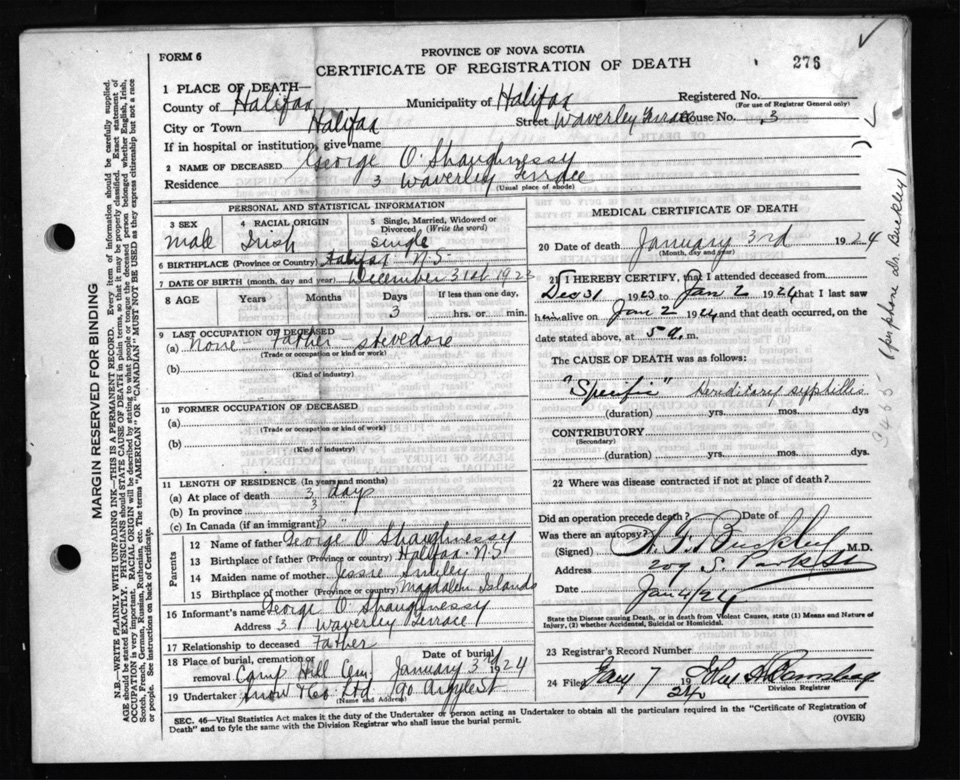 FORM 6
PROVINCE OF NOVA SCOTIA
CERTIFICATE OF REGISTRATION OF DEATH
276
1 PLACE OF DEATH—
County of Halifax Municipality of Halifax Registered No.
(For use of Registrar General only)
City or Town Halifax Street Waverley Terrace House No. 3
If in hospital or institution, give name
2 NAME OF DECEASED George O'Shaughnessy
Residence 3 Waverley Terrace
(Usual place of abode)
PERSONAL AND STATISTICAL INFORMATION
3 SEX 4 RACIAL ORIGIN 5 Single, Married, Widowed or Divorced (Write the word)
male Irish single
6 BIRTHPLACE (Province or Country) Halifax N.S.
7 DATE OF BIRTH (month, day and year) December 31st 1923
8 AGE Years Months Days If less than one day,
3 hrs. or min.
9 LAST OCCUPATION OF DECEASED
(a) none - Father - stevedore
(Trade or occupation or kind or work)
(b)
(Kind of industry)
10 FORMER OCCUPATION OF DECEASED
(a)
(Trade or occupation or kind of work)
(b)
(Kind of industry)
11 LENGTH OF RESIDENCE (In years and months)
(a) At place of death 3 days
(b) In province 3 "
(c) In Canada (if an immigrant)
Parents
12 Name of father George O'Shaughnessy
13 Birthplace of father (Province or country) Halifax N.S
14 Maiden name of mother Jessie Smiley
15 Birthplace of mother (Province or country) Magdalen Islands
16 Informant's name George O'Shaughnessy
Address 3 Waverley Terrace
17 Relationship to deceased Father
18 Place of burial, cremation or removal Date of burial
Camp Hill Cem January 3rd 1924
19 Undertaker Snow & Co. Ltd. 90 Argyle St
(Name and Address)
MEDICAL CERTIFICATE OF DEATH
20 Date of death January 3rd 1924
(Month, day and year)
21 I HEREBY CERTIFY, that I attended deceased from
Dec 31 1923 to Jan 2 1924 that I last saw
him alive on Jan 2 1924 and that death occurred, on the
date stated above, at 5 a. m.
The CAUSE OF DEATH was as follows:
"Specific" Hereditary syphilis
(duration) yrs. mos. dys
CONTRIBUTORY
(Secondary)
(duration) yrs. mos. dys.
22 Where was disease contracted if not at place of death?
Did an operation precede death? Date of
Was there an autopsy?
(Signed) A. F. Buckley M.D.
Address 209 S. Park St
Date Jan 4/24
State the Disease causing Death, or in death from Violent Causes, state (1) Means and Nature of Injury, (2) whether Accidental, Suicidal or Homicidal.
23 Registrar's Record Number
24 Filed Jany 7 1924
Division Registrar
SEC. 46—Vital Statistics Act makes it the duty of the Undertaker or person acting as Undertaker to obtain all the particulars required in the "Certificate of Registration of
Death" and to fyle the same with the Division Registrar who shall issue the burial permit.
(OVER)
MARGIN RESERVED FOR BINDING
N.B.—WRITE PLAINLY WITH UNFADING INK—THIS IS A PERMANENT RECORD. Every item of information should be carefully supplied.
AGE should be stated EXACTLY. PHYSICIANS should STATE CAUSE OF DEATH in plain terms, so that it may be properly classified. Exact statement of
OCCUPATION is very important. RACIAL ORIGIN will be described by stating to what people or tongue the deceased person belonged whether English, Irish,
Scotch, French, German, Russian, Ruthenian, etc. The terms "AMERICAN" or "CANADIAN" MUST NOT BE USED as they express citizenship but not a race
or people. See instructions on back of Certificate.
(per phone Dr. Buckley)